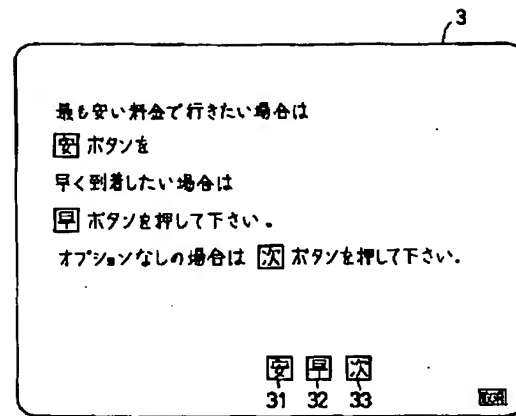 3
最も安い料金で行きたい場合は
安 ボタンを
早く到着したい場合は
早 ボタンを押して下さい。
オプションなしの場合は 次 ボタンを押して下さい。
安 早 次
31 32 33
取消